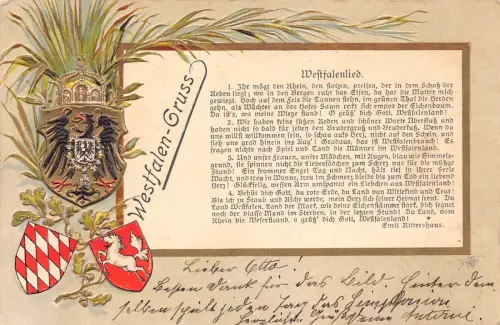 Westfalen-Gruss
Westfalenlied.
1. Ihr mögt den Rhein, den stolzen, preisen, der in dem Schoß der
Reben liegt; wo in den Bergen ruht das Eisen, da hat die Mutter mich
gewiegt. Hoch auf dem Fels die Tannen stehn, im grünen Thal die Herden
gehn, als Wächter an des Hofes Saum reckt sich empor der Eichenbaum.
Da ist's, wo meine Wiege stand! O grüß' dich Gott, Westfalenland!
2. Wir haben keine süßen Reden und schöner Worte Überfluß und
haben nicht so bald für jeden den Brudergruß und Bruderkuß. Wenn du
uns willst willkommen sein, so schau aufs Herz, nicht auf den Schein, und
sieh uns grad hinein ins Aug'! Gradaus, das ist Westfalenbrauch! Es
fragen nicht nach Spiel und Tand die Männer im Westfalenland.
3. Und unsre Frauen, unsre Mädchen, mit Augen, blau wie Himmelsgrund,
sie spinnen nicht die Liebesfädchen zum Scherz nur für die müß'ge
Stund! Ein frommer Engel Tag und Nacht, hält tief in ihrer Seele
Wacht, und treu in Wonne, treu im Schmerz bleibt bis zum Tod ein liebend
Herz! Glückselig, wessen Arm umspannt ein Liebchen aus Westfalenland!
4. Behüt' dich Gott, du rote Erde, du Land von Wittekind und Teut!
Bis ich zu Staub und Asche werde, mein Herz sich seiner Heimat freut. Du
Land Westfalen, Land der Mark, wie deine Eichenstämme stark, dich segnet
noch der blasse Mund im Sterben, in der letzten Stund! Du Land, vom
Rhein bis Weserstrand, o grüß' dich Gott, Westfalenland!
Emil Rittershaus.
Lieber Otto!
Besten Dank für das Bild. Hinter dem
selben spielt jeden Tag das
Herzlichen Gruß